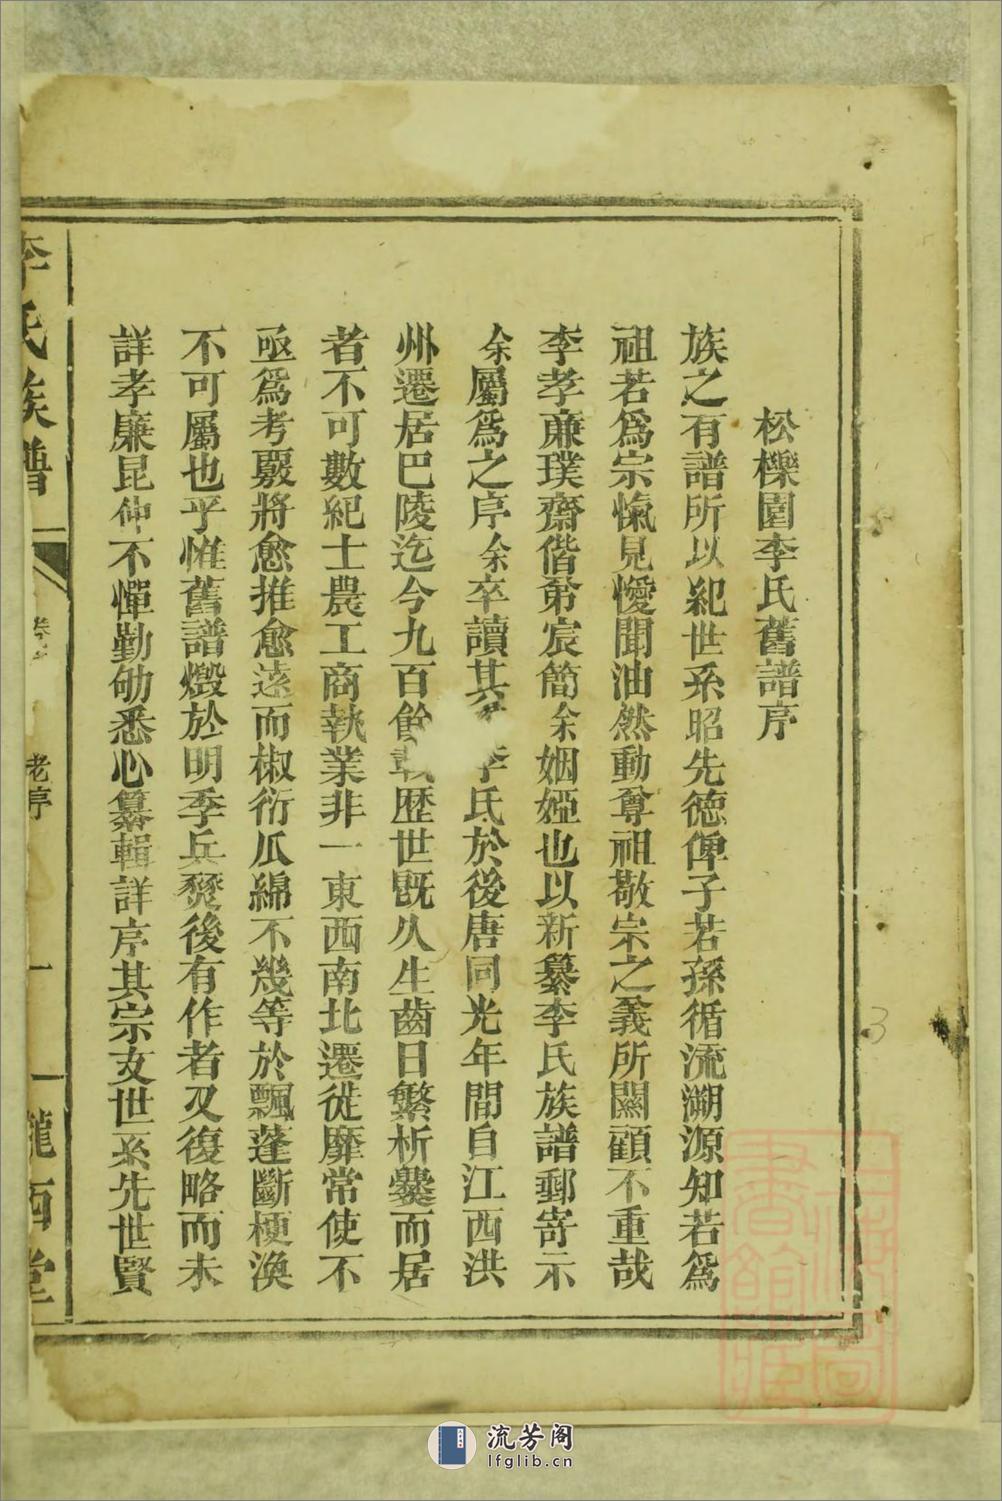 松櫟園李氏舊譜序
族之有譜所以紀世系昭先德俾子若孫循流溯源知若爲
祖若爲宗愾見僾聞油然動尊祖敬宗之義所關顧不重哉
李孝亷璞齋偕弟宸簡余姻婭也以新纂李氏族譜郵寄示
余屬爲之序余卒讀其 李氏於後唐同光年間自江西洪
州遷居巴陵迄今九百餘載歷世既久生齒日繁析爨而居
者不可數紀士農工商執業非一東西南北遷徙靡常使不
亟爲考覈將愈推愈遠而椒衍瓜綿不幾等於飄蓬斷梗渙
不可屬也乎惟舊譜燬於明季兵燹後有作者又復略而未
詳孝廉昆仲不憚勤劬悉心纂輯詳序其宗支世系先世賢
李氏族譜
老序
一
隴西堂
3
流芳阁
lfglib.cn